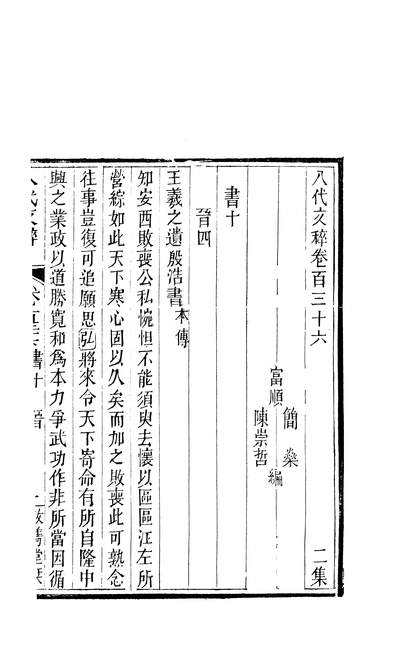 八代文粹卷百三十六　二集
富順
簡燊
陳崇哲
編
書十
晉四
王羲之遺殷浩書本傳
知安西敗喪公私惋怛不能須臾去懷以區區江左所
營綜如此天下寒心固以久矣而加之敗喪此可熟念
往事豈復可追願思弘將來令天下寄命有所自隆中
興之業政以道勝寬和爲本力爭武功作非所當因循
書十　晉